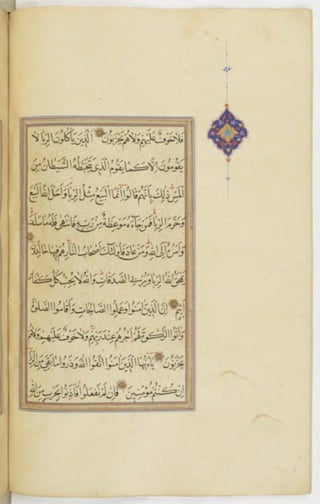 فَلَا خَوْفٌ عَلَيْهِمْ وَلَا هُمْ يَحْزَنُونَ الَّذِينَ يَأْكُلُونَ الرِّبَا لَا
يَقُومُونَ إِلَّا كَمَا يَقُومُ الَّذِي يَتَخَبَّطُهُ الشَّيْطَانُ مِنَ
الْمَسِّ ذَلِكَ بِأَنَّهُمْ قَالُوا إِنَّمَا الْبَيْعُ مِثْلُ الرِّبَا وَأَحَلَّ اللَّهُ الْبَيْعَ
وَحَرَّمَ الرِّبَا فَمَنْ جَاءَهُ مَوْعِظَةٌ مِنْ رَبِّهِ فَانْتَهَى فَلَهُ مَا سَلَفَ
وَأَمْرُهُ إِلَى اللَّهِ وَمَنْ عَادَ فَأُولَئِكَ أَصْحَابُ النَّارِ هُمْ فِيهَا خَالِدُونَ
يَمْحَقُ اللَّهُ الرِّبَا وَيُرْبِي الصَّدَقَاتِ وَاللَّهُ لَا يُحِبُّ كُلَّ كَفَّارٍ
أَثِيمٍ إِنَّ الَّذِينَ آمَنُوا وَعَمِلُوا الصَّالِحَاتِ وَأَقَامُوا الصَّلَوةَ
وَآتَوُا الزَّكَوةَ لَهُمْ أَجْرُهُمْ عِنْدَ رَبِّهِمْ وَلَا خَوْفٌ عَلَيْهِمْ وَلَا هُمْ
يَحْزَنُونَ يَا أَيُّهَا الَّذِينَ آمَنُوا اتَّقُوا اللَّهَ وَذَرُوا مَا بَقِيَ مِنَ الرِّبَا
إِنْ كُنْتُمْ مُؤْمِنِينَ فَإِنْ لَمْ تَفْعَلُوا فَأْذَنُوا بِحَرْبٍ مِنَ اللَّهِ